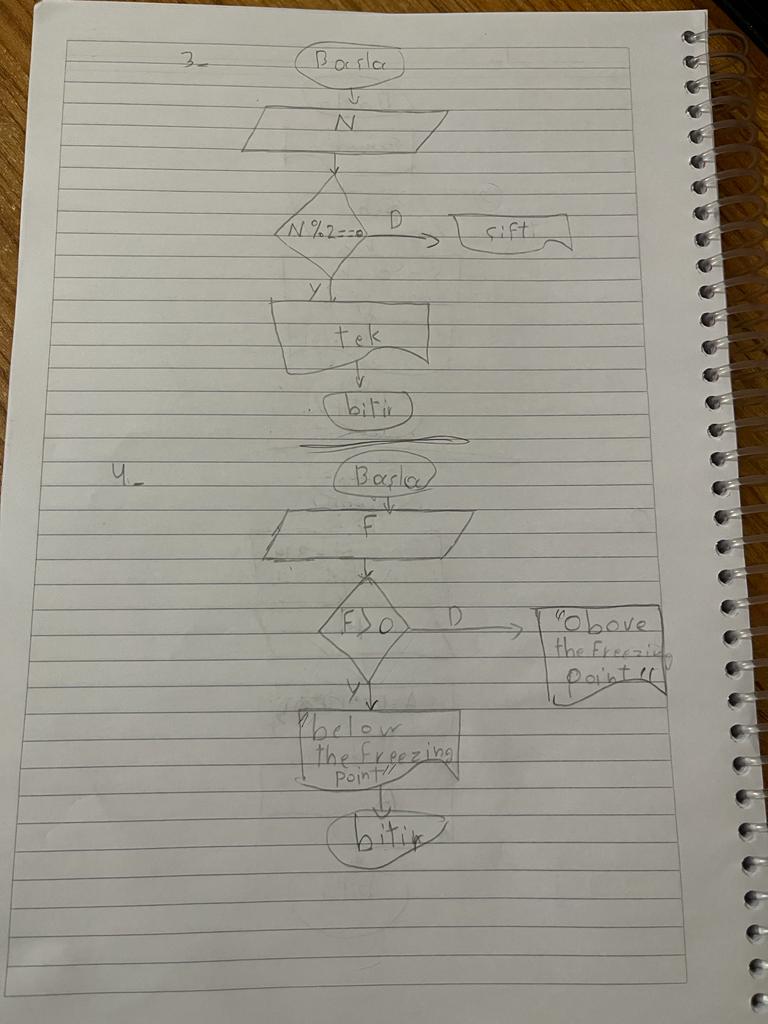 3_
Başla
N
N%2==0
D
çift
Y
tek
bitir
4_
Başla
F
F>0
D
"Above
the Freezing
point"
Y
"below
the freezing
point"
bitir